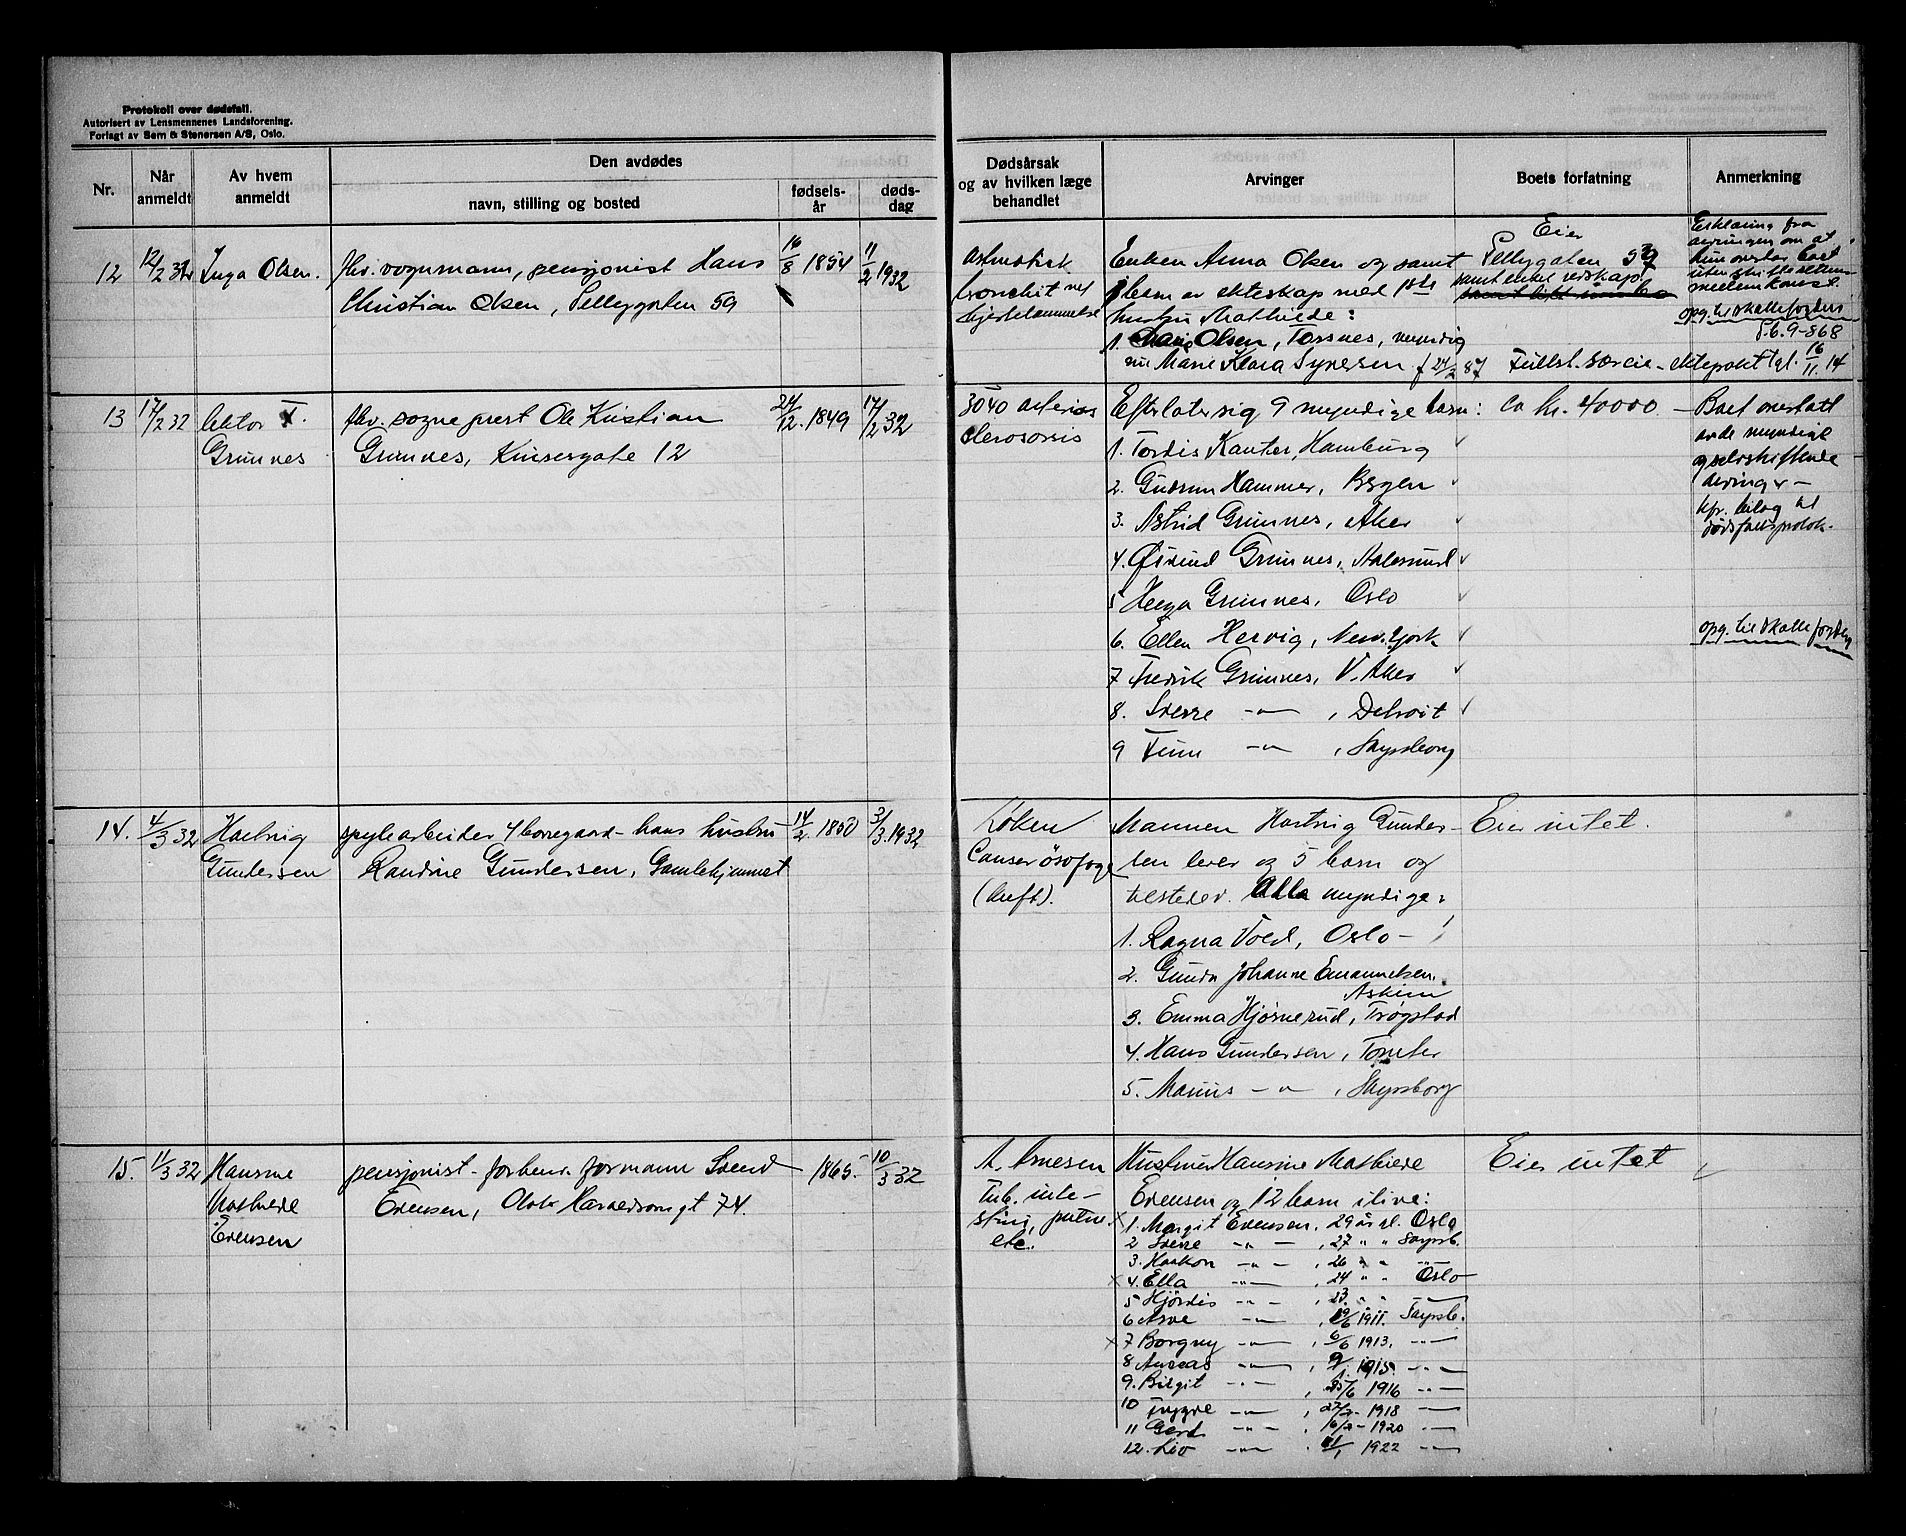 Protokoll over dødsfall.
Autorisert av Lensmennenes Landsforening.
Forlagt av Sem & Stenersen A/S, Oslo.
Nr.
Når anmeldt
Av hvem anmeldt
Den avdødes
navn, stilling og bosted
fødsels-år
døds-dag
Dødsårsak og av hvilken læge behandlet
Arvinger
Boets forfatning
Anmerkning
12
12/2 32
Inga Olsen.
fhv. vognmann, pensjonist Hans
Christian Olsen, Pellygaten 59
16/8 1854
11/2 1932
astmatisk
bronchit
Enken Anna Olsen og samt
barn av ekteskap med 1ste
hustru Mathilde:
1. Marie Olsen, Torsnes, myndig
nu Marie Klara Syversen f 24/2 87
Eier
Pellygaten 59
samt enkel redskap
Fullst. særeie - ektepakt tgl. 16/11 14
Erklæring fra
arvingen om at
opg. til skattefordeli
S.b. 9-868
13
17/2 32
lektor F.
Grimnes
fhv. sogneprest Ole Kristian
Grimnes, Kirsergate 12
24/12. 1849
17/2 32
3040 arterios
clerosorsis
Efterlater sig 9 myndige barn:
1. Tordis Kanter, Hamburg
2. Gudrun Hammer, Bergen
3. Astrid Grimnes, Aker
4. Øivind Grimnes, Aalesund
5 Helga Grimnes, Oslo
6. Ellen Hervig, New.York
7 Fredrik Grimnes, V. Aker
8. Sverre -"- , Detroit
9 Finn -"- , Sarpsborg
ca kr. 40000. -
Boet overtatt
av de myndige
og selvskiftende
arvinger -
kfr. bilag til
dødsfallsprotok-
opg. til skattefordeling
14.
4/3 32
Hartvig
Gundersen
spylearbeider Borregaard - hans hustru
Randine Gundersen, Gamlehjemmet
14/2. 1850
3/3. 1932
Løken
Canser øsofage
(luft).
Mannen Hartvig Gunder-
sen lever og 5 barn og
tilsteder. Alle myndige:
1. Ragna Vold, Oslo -
2. Gunda Johanne Emanuelsen.
Askim
3. Emma Hjørnerud, Trøgstad
4. Hans Gundersen, Tomter
5. Marius -"- , Sarpsborg
Eier intet.
15.
11/3 32
Hansine
Mathilde
Evensen
pensjonist - forhenv. formann Svend
Evensen, Olav Haraldsonsgt 74.
1865.
10/3 32
A. Arnesen
Tub. inte-
stini,
etc.
Hustru Hansine Mathilde
Evensen og 12 barn ilive:
1. Margit Evensen, 29 år gl. Oslo
2 Sverre -"- , 27 " " Sarpsb.
3. Haakon -"- , 26 " " -"-
4. Ella -"- , 24 " " Oslo
5 Hjørdis -"- , 23. " " —
6 Arne -"- , 19/6 1911. Sarpsb.
7 Borgny -"- , 6/6 1913. -"-
8 Andreas -"- , 9/1 1915. -"-
9. Birgit -"- , 25/6 1916 -"-
10 Trygve -"- , 27/2- 1918 -"-
11 Gerd -"- , 16/2- 1920 -"-
12. Liv -"- . 11/1 1922 -"-
Eier intet